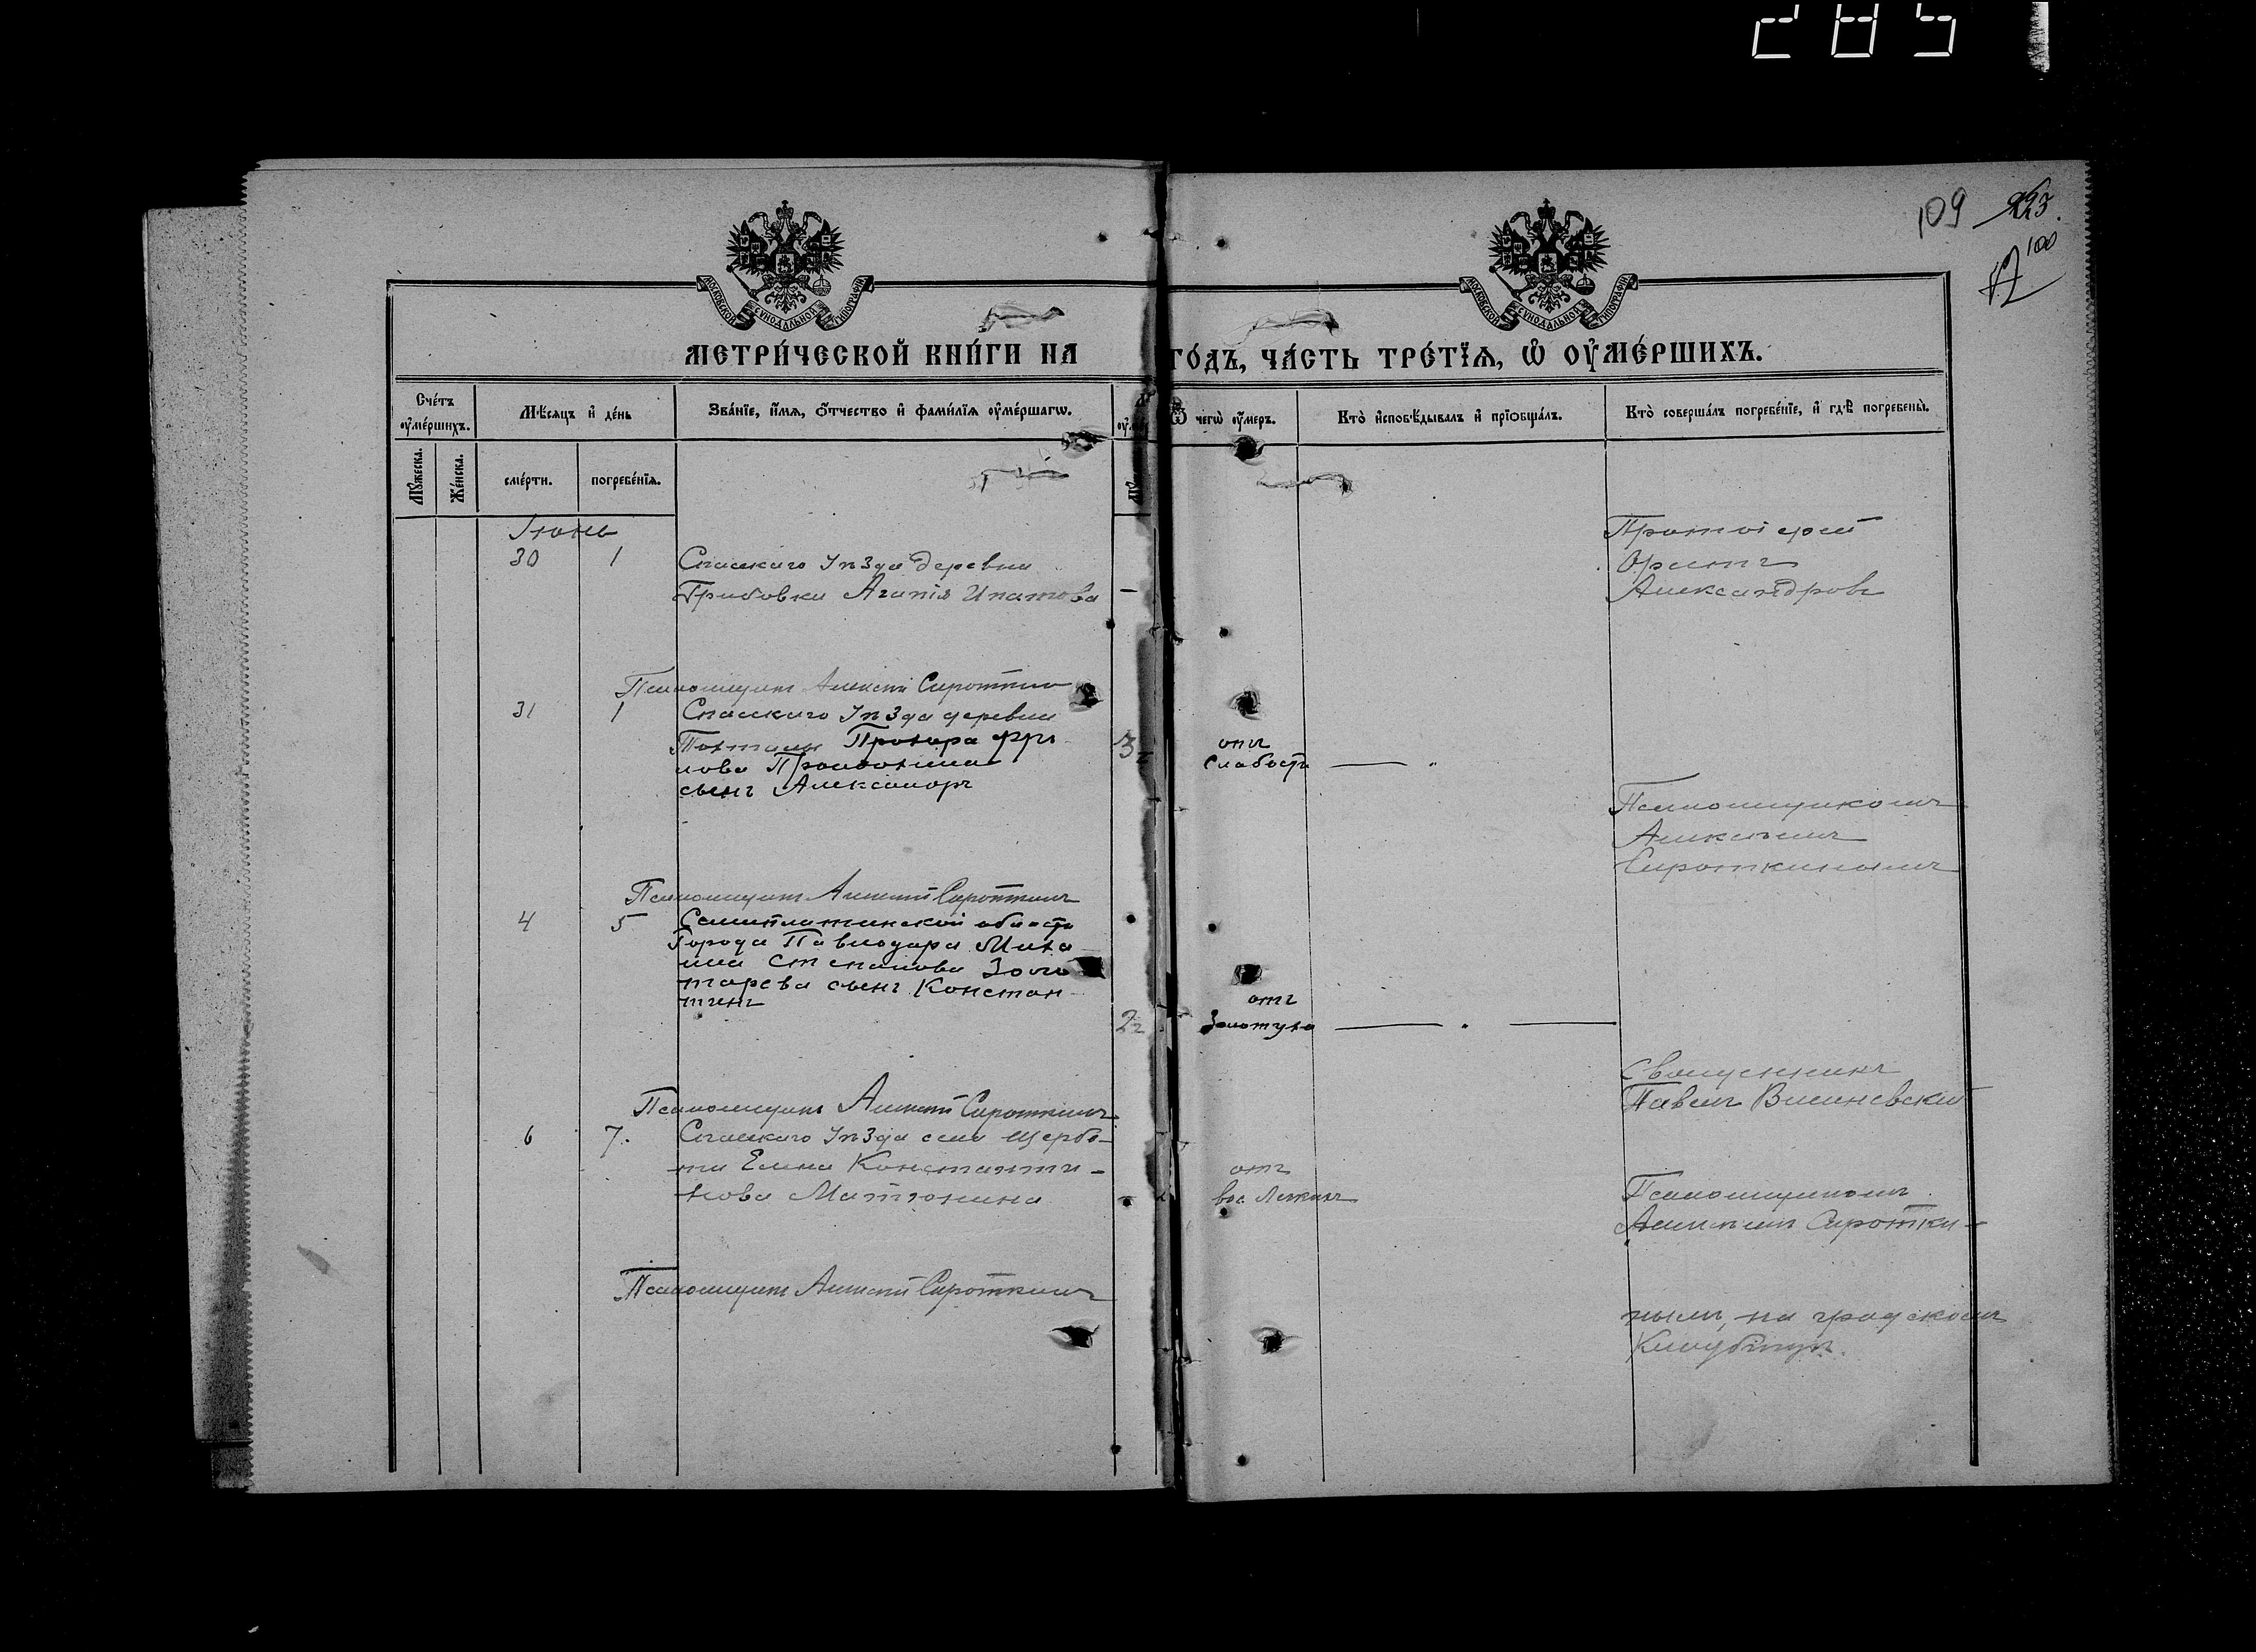 2851
109
100
МОСКОВСКОЙ СѴНОДАЛЬНОЙ ТИПОГРАФІИ
МОСКОВСКОЙ СѴНОДАЛЬНОЙ ТИПОГРАФІИ
МЕТРИ́ЧЕСКОЙ КНИ́ГИ НА ГО́ДЪ, ЧА́СТЬ ТРЕ́ТЇѦ, Ѡ҆ ОУ҆МЕ́РШИХЪ.
Сче́тъ оу҆ме́ршихъ.
Мѣ́сяцъ и҆ де́нь
Зва́нїе, и҆́мѧ, ѻ҆́тчество и҆ фами́лїѧ оу҆ме́ршагѡ.
Ѿ чегѡ̀ оу҆́меръ.
Кто̀ и҆сповѣ́дывалъ и҆ прїѡбща́лъ.
Кто̀ соверша́лъ погребе́нїе, и҆ гдѣ̀ погребены̀.
Мꙋ́жеска.
Же́нска.
сме́рти.
погребе́нїѧ.
Іюнь
30 1 Спасскаго Уѣзда деревни
Грибовки Агапія Ипатова —
Протоіерей
Орестъ
Александровъ
Псаломщикъ Алексѣй Сироткинъ
31 1 Спасскаго Уѣзда деревни
Прохора
сынъ Александръ
3
отъ
Слабости —
Псаломщикомъ
Алексѣемъ
Сироткинымъ
Псаломщикъ Алексѣй Сироткинъ
4 5 Семипалатинской области
Города Павлодара Миха
ила Степанова Золо
тарева сынъ Констан
тинъ
2
отъ
Золотухи — —
Священникъ
Павелъ Вишневскій
Псаломщикъ Алексѣй Сироткинъ
6 7. Спасскаго Уѣзда села Щерба-
ти Елена Константи-
нова Матюнина
отъ
вос. Легкихъ
Псаломщикомъ
Алексѣемъ Сиротки-
нымъ, на градскомъ
Кладбищѣ.
Псаломщикъ Алексѣй Сироткинъ